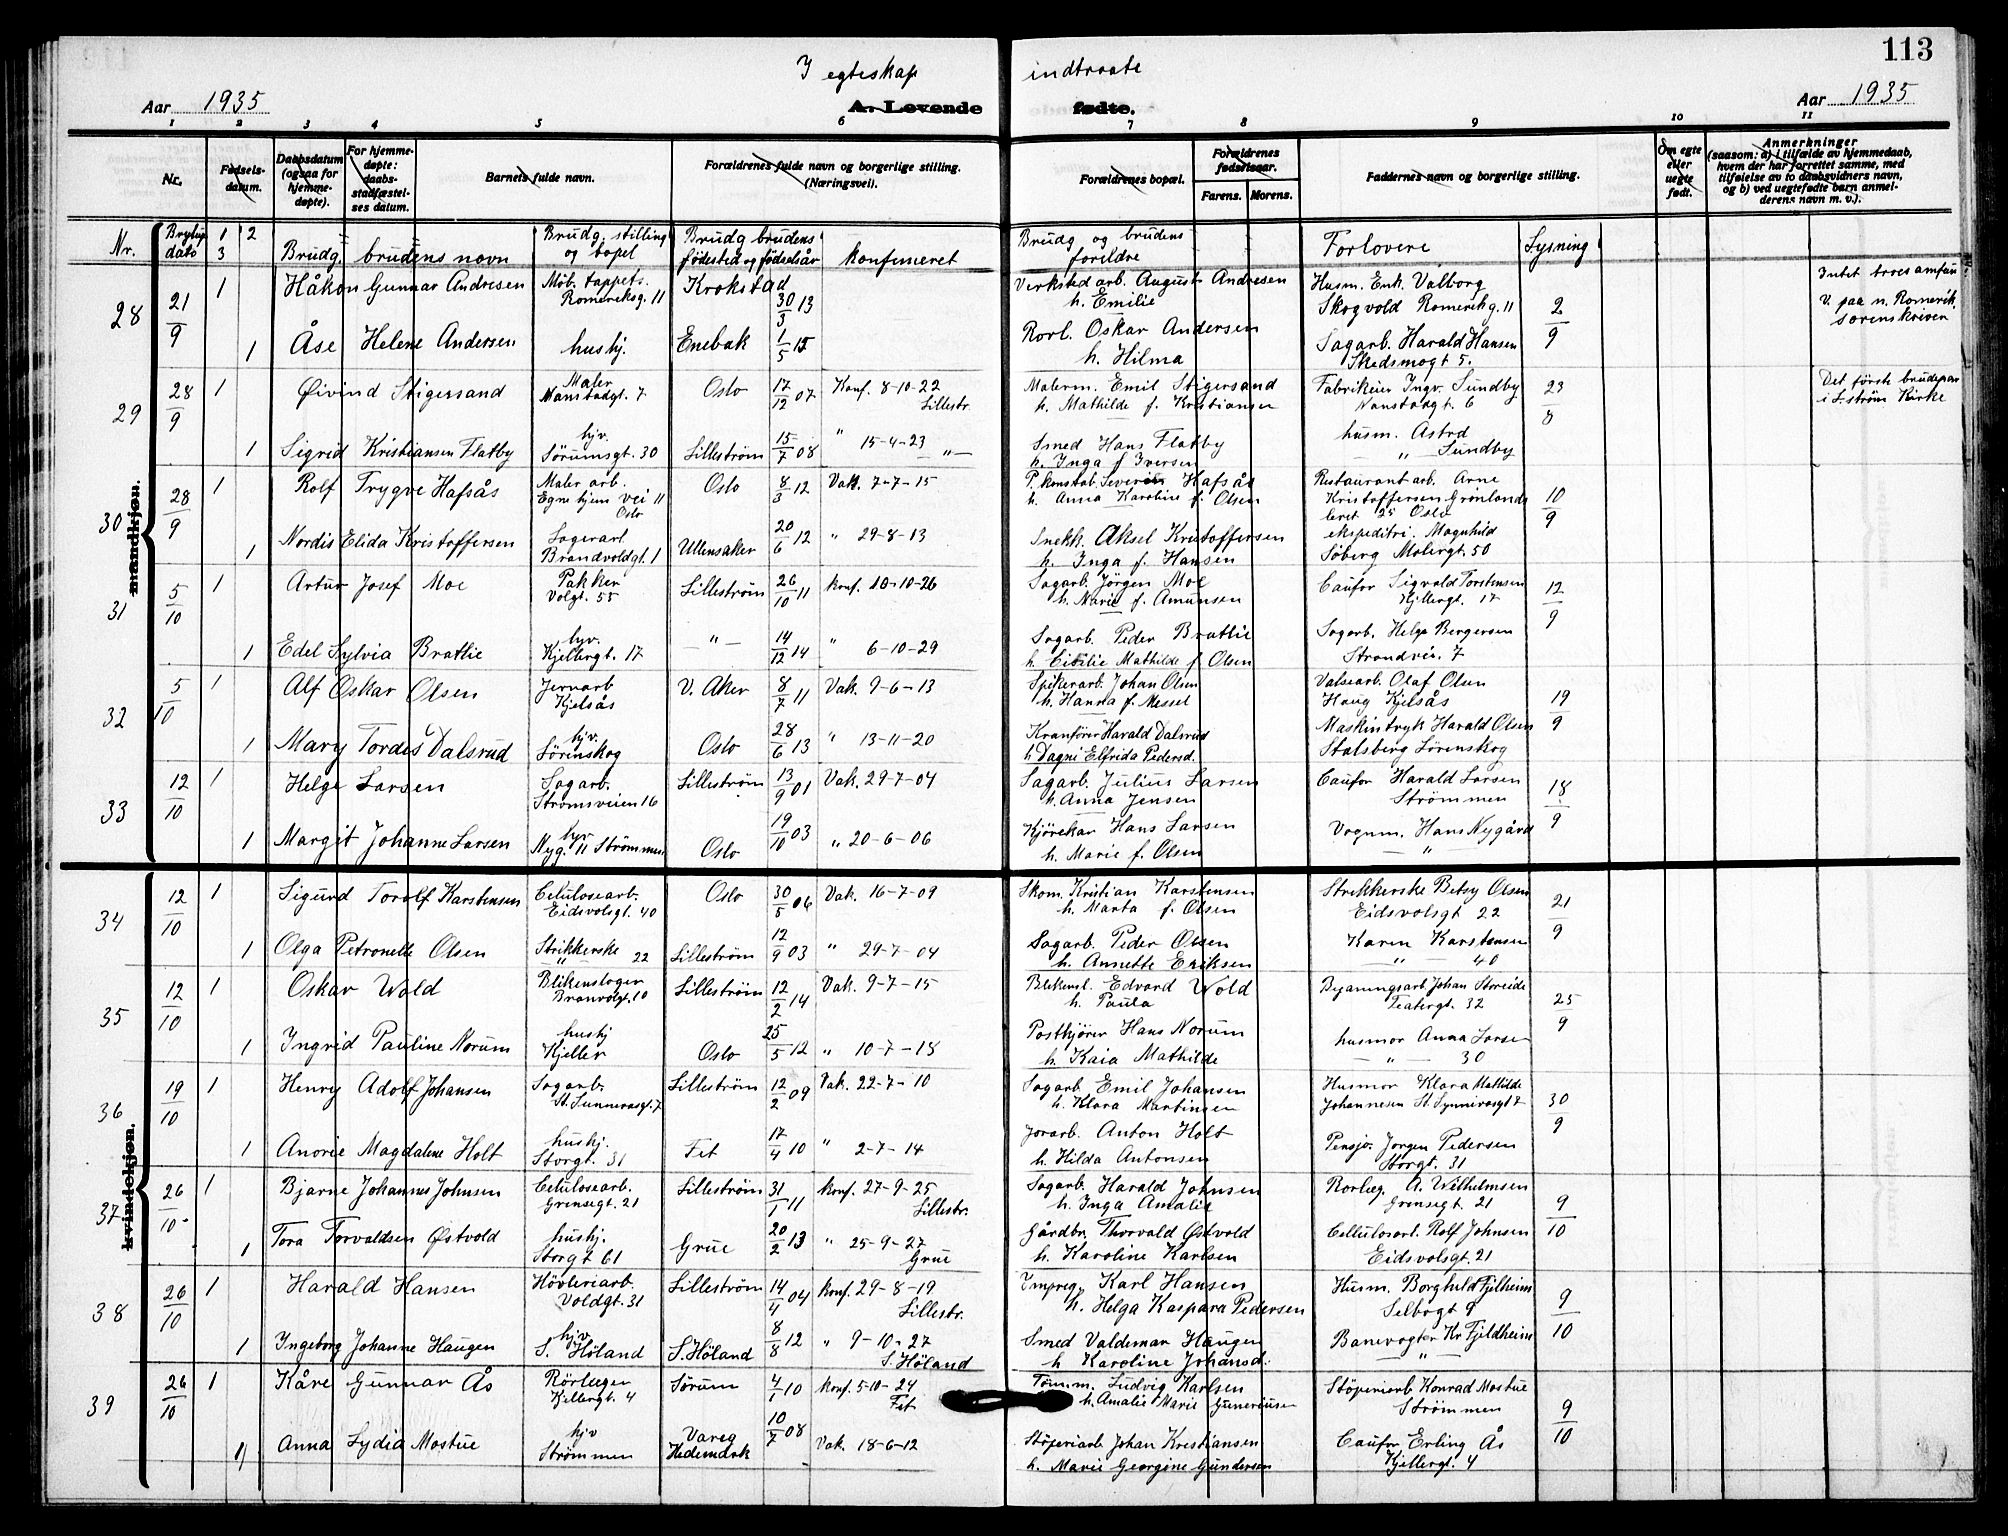 113
I egteskap indtraate
Aar 1935
A. Levende fødte.
Aar 1935
1 2 3 4 5 6 7 8 9 10 11
Nr.
Fødsels-
datum.
Daabsdatum
(ogsaa for
hjemme-
døpte).
For hjemme-
døpte:
daabs-
stadfæstel-
ses datum.
Barnets fulde navn.
Forældrenes fulde navn og borgerlige stilling.
(Næringsvei).
Forældrenes bopæl.
Forældrenes
fødselsaar.
Farens. Morens.
Faddernes navn og borgerlige stilling.
Om egte
eller
uegte
født.
Anmerkninger
(saasom: a) i tilfælde av hjemmedaab,
hvem der har forrettet samme, med
tilføielse av to daabsvidners navn,
og b) ved uegtefødte barn anmel-
derens navn m. v.).
Nr. Bryllup dato 1 2 3
Brudg. brudens navn
Brudg. stilling og bopel
Brudg brudens fødested og fødselsår
konfirmeret
Brudg og brudens foreldre
Forlovere
Lysning
mandkjøn.
28 21/9 1 Håkon Gunnar Andresen Møb. tappets. Romeriksg. 11 Krokstad 30/3 13 Verksted arb. August Andresen h. Emilie Husm. Enk. Valborg Skogvold Romerikg. 11 2/9 Intet troessamfun V. paa n. Romerik. sorenskriver
1 Åse Helene Andersen hushj. Enebak 1/5 15 Rørl. Oskar Andersen h. Hilma Sagarb. Harald Hansen Skedsmogt 5.
29 28/9 1 Øivind Stigersand Maler Nanstadgt. 7 Oslo 17/12 07 Konf. 8-10-22 Lillestr. Malerm. Emil Stigersand h. Mathilde f. Kristiansen Fabrikeier Ingv. Sundby Nanstadgt 6 23/8 Det første brudepar i L.strøm Kirke
1 Sigrid Kristiansen Flatby hjv. Sørumsgt. 30 Lillestrøm 15/7 08 " 15-4-23 —"— Smed Hans Flatby h. Inga f Iversen husm. Astrd —"— Sundby
30 28/9 1 Rolf Trygve Hafsås Maler arb. Egne hjem vei 11 Oslo Oslo 8/3 12 Vak. 7-7-15 P. konstab. Severin Hafsås h. Anna Karoline f. Olsen Restaurant arb. Arne Kristoffersen Grønlands leret 25 Oslo 10/9
1 Nordis Elida Kristoffersen Lagerarb Brandvoldgt. 1 Ullensaker 20/6 12 " 29-8-13 Snekk. Aksel Kristoffersen h. Inga f. Hansen ekspeditri. Magnhild Søberg Møllergt. 50
31 5/10 1 Artur Josef Moe Pakker Volgt. 55 Lillestrøm 26/10 11 konf. 10-10-26 Sagarb. Jørgen Moe h. Marie f. Amunsen Caufør Sigvald Torstensen Kjellergt. 17 12/9
1 Edel Sylvia Bratlie hjv. Kjellergt. 17 —"— 14/12 14 " 6-10-29 Sagarb. Peder Bratlie h. Cicilie Mathilde f Olsen Sagarb. Helge Bergersen Strandvei. 7
32 5/10 1 Alf Oskar Olsen Jernarb Kjelsås V. Aker 8/7 11 Vak. 9-6-13 Spikerarb. Johan Olsen h. Hanna f. Messel Valsearb. Olaf Olsen Haug Kjelsås 19/9
1 Mary Tordis Dalsrud hjv. Sørenskog Oslo 28/6 13 " 13-11-20 Kranfører Harald Dalsrud h Dagni Elfrida Pedersd. Maskintryk Harald Olsen Stalsberg Lørenskog
33 12/10 1 Helge Larsen Sagarb. Strømsveien 16 Lillestrøm 13/9 01 Vak. 29-7-04 Sagarb. Julius Larsen h. Anna Jensen Caufør Harald Larsen Strømmen 18/9
1 Margit Johanne Larsen hjv Nyg. 11 Strømmen Oslo 19/10 03 " 20-6-06 Kjørekar Hans Larsen h. Marie f. Olsen Vognm. Hans Nygård —"—
kvindekjøn.
34 12/10 1 Sigurd Torolf Karstensen Celulosearb. Eidsvolsgt. 40 Oslo 30/5 06 Vak. 16-7-09 Skom. Kristian Karstensen h. Marta f. Olsen Strikkerske Betsy Olsen Eidsvolsgt 22 21/9
1 Olga Petronelle Olsen Strikkerske " 22 Lillestrøm 12/9 03 " 29-7-04 Sagarb. Peder Olsen h. Annette Eriksen Karen Karstensen —"— 40
35 12/10 1 Oskar Wold Blikenslager Branvolgt. 10 Lillestrøm 12/2 14 Vak. 9-7-15 Blikensl. Edvard Wold h. Paula Bygningsarb Johan Storeide Teatergt. 32 25/9
1 Ingrid Pauline Norum hushj Kjeller Oslo 25/5 12 " 10-7-18 Postkjører Hans Norum h. Kaia Mathilde husmor Anna Larsen —"— 30
36 19/10 1 Henry Adolf Johansen Sagarb. St. Sunnevasgt. 7 Lillestrøm 12/2 09 Vak. 22-7-10 Sagarb Emil Johansen h. Klara Martinsen Husmor Klara Mathilde Johannesen St. Synnivasgt 7 30/9
1 Anorie Magdalene Holt hushj. Storgt. 31 Fet 17/4 10 " 2-7-14 Jorarb. Anton Holt h. Hilda Antonsen Pensjo. Jørgen Pedersen Storgt. 31
37 26/10 1 Bjarne Johannes Johnsen Celulosearb. Grensegt. 21 Lillestrøm 31/1 11 konf. 27-9-25 Lillestr. Sagarb. Harald Johnsen h. Inga Amalie Rørleg. A. Wilhelmsen Grensegt. 21 9/10
1 Tora Torvaldsen Østvold hushj. Storgt 61 Grue 20/2 13 " 25-9-27 Grue Gårdbr. Thorvald Østvold h. Karoline Karlsen Cellulosarb. Rolf Johnsen Eidsvolsgt. 21
38 26/10 1 Harald Hansen Høvleriarb. Voldgt. 31 Lillestrøm 14/4 04 konf. 29-8-19 Lillestr. Impreg. Karl Hansen h. Helga Kaspara Pedersen Husm. Borghild Fjelheim Selbogt 9 9/10
1 Ingeborg Johanne Haugen hjv S. Høland S. Høland 8/8 12 " 9-10-27 S. Høland Smed Valdemar Haugen h Karoline Johansd. Banevogter Kr Fjeldheim —"—
39 26/10 1 Kåre Gunnar Ås Rørlegger Kjellergt. 4 Sørum 4/1 10 konf. 5-10-24 Fet Tømm. Ludvig Karlsen h. Amalie Marie Gunerøusen Støperiarb Konrad Mostue Strømmen 9/10
1 Anna Lydia Mostue hjv Strømmen Vareg Hedemark 10/7 08 Vak. 18-6-12 Støperiarb Johan Kristiansen h. Marie Georgine Gundersen Caufør Erling Ås Kjellergt. 4